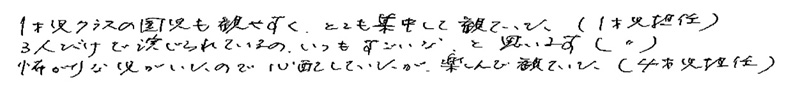 1才児クラスの園児も観やすく、とても集中して観ていた。(1才児担任)
3人だけで演じられているの、いつもすごいな、と思います(〃)
怖がりな児がいたので心配していたが、楽しんで観ていた。(4才児担任)